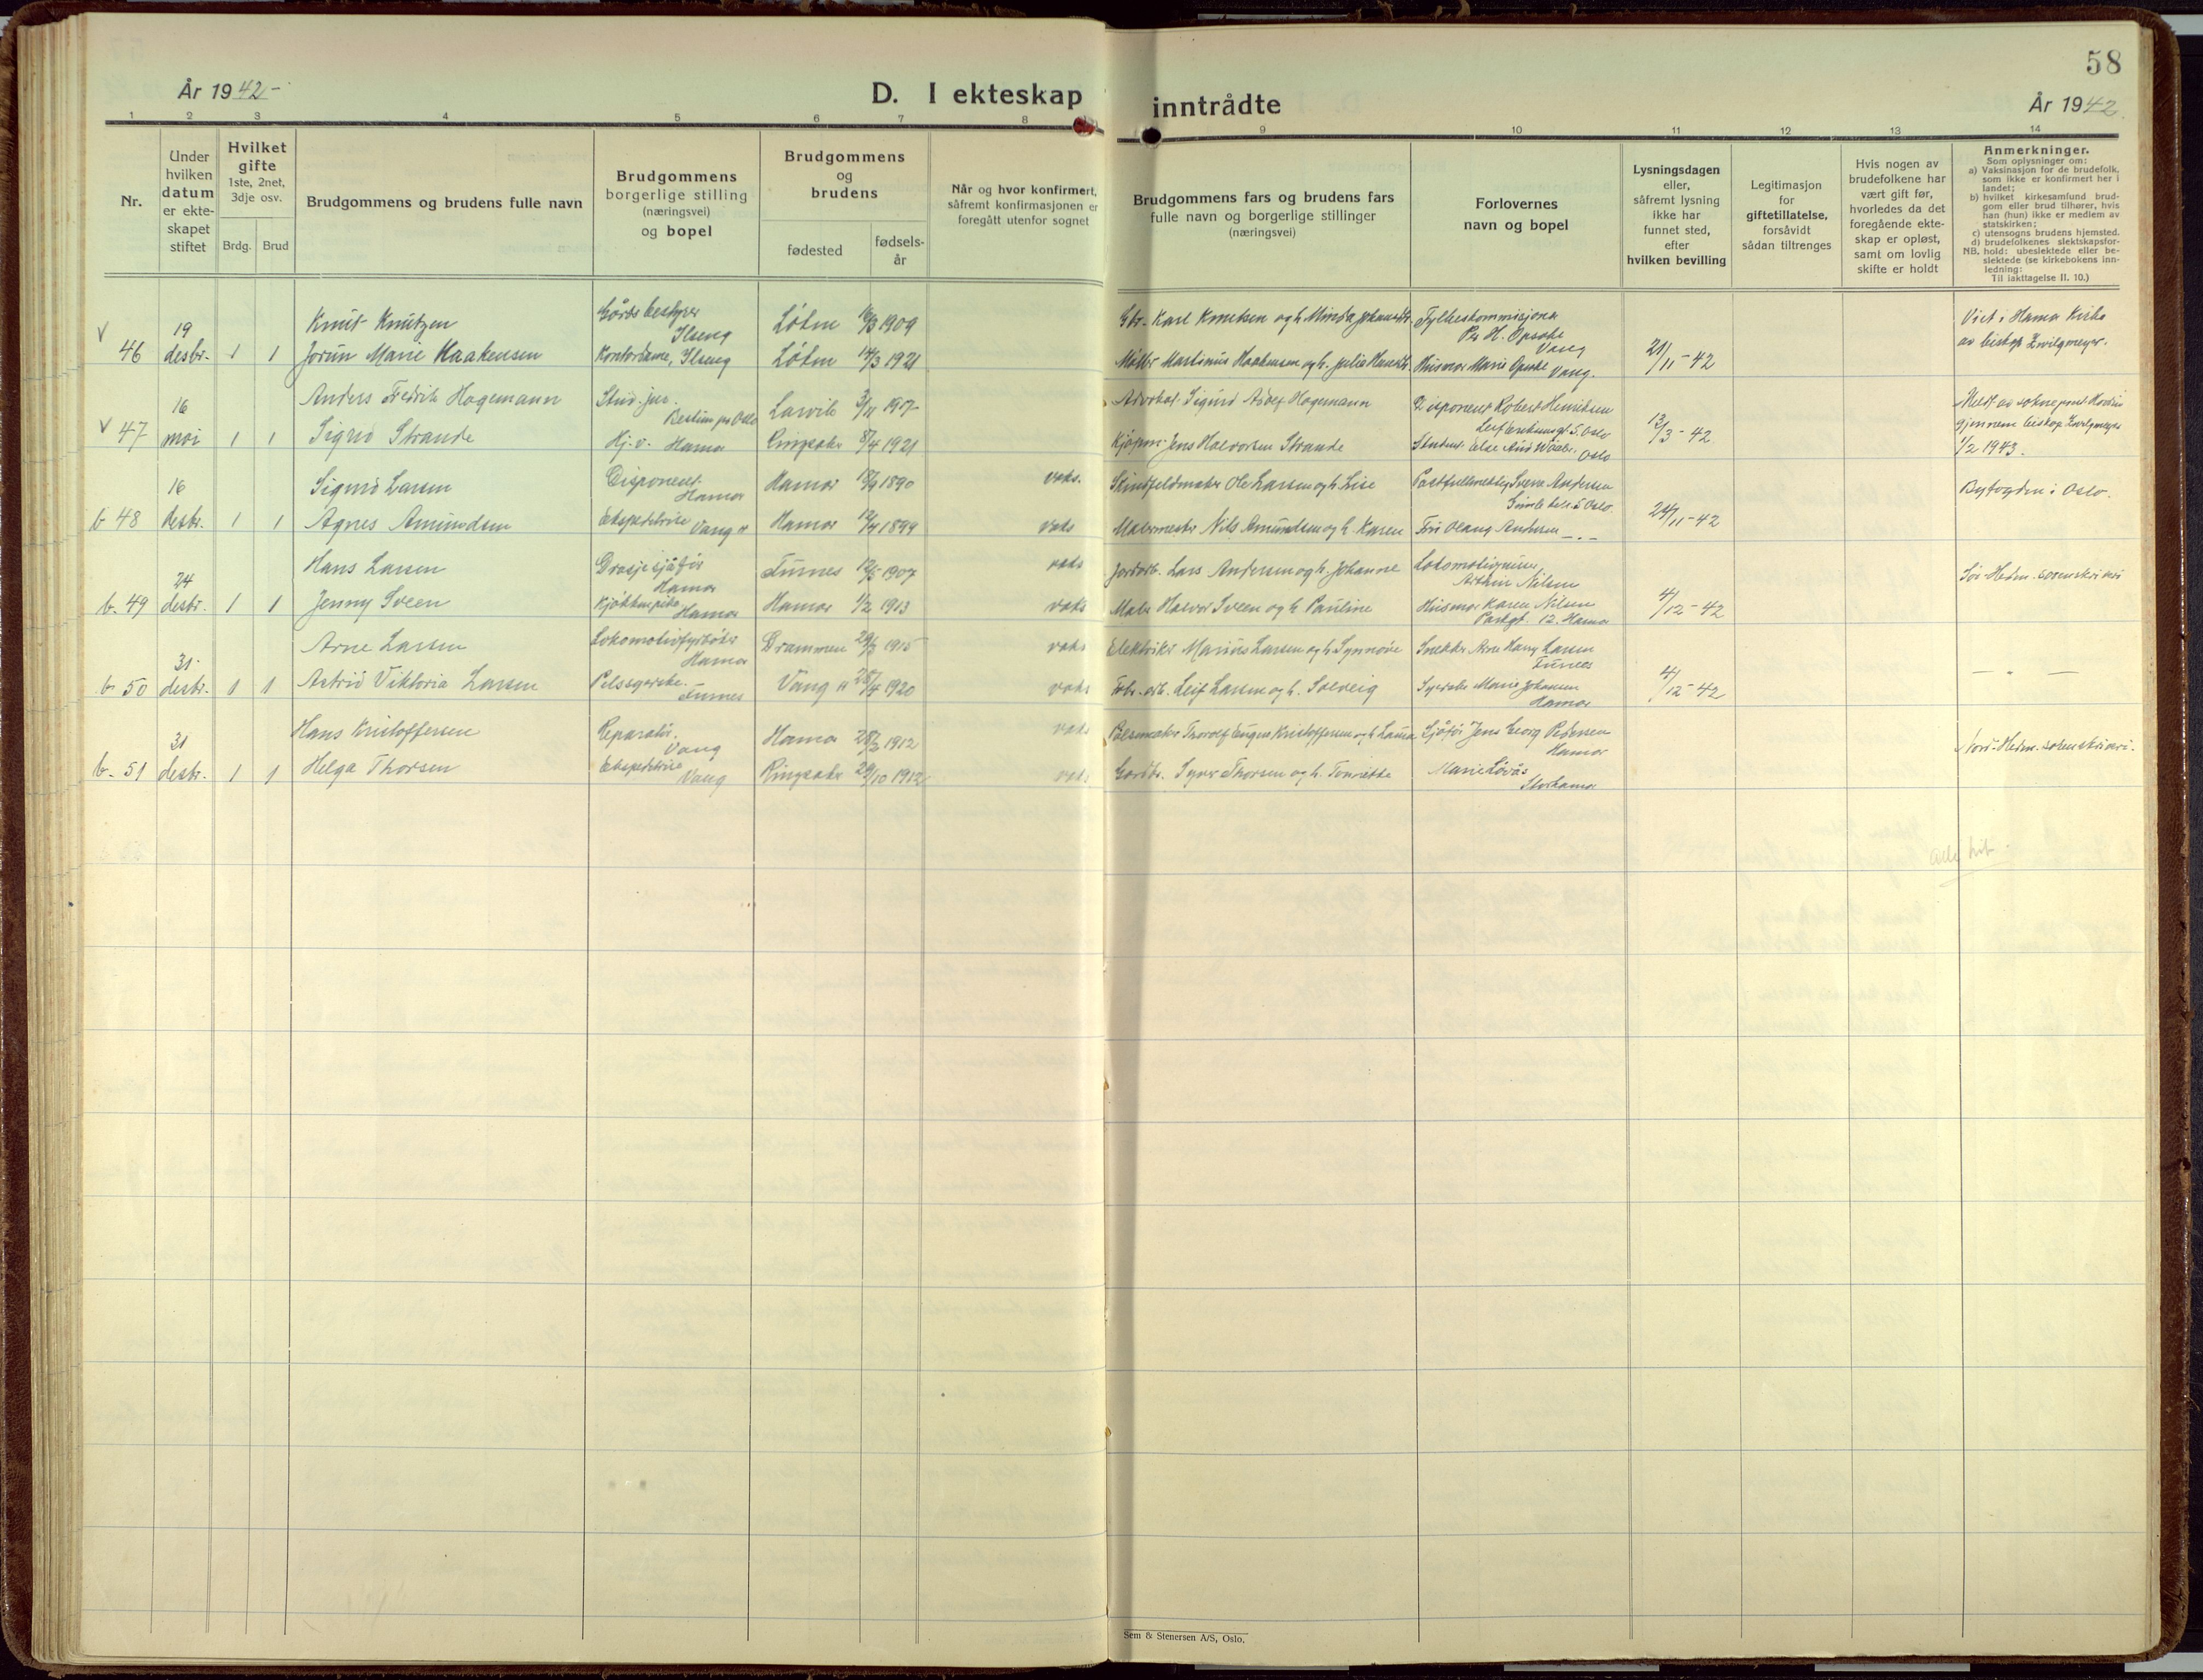 58
År 1942-
D. I ekteskap inntrådte
År 1942.
1 2 3 4 5 6 7 8 9 10 11 12 13 14
Nr.
Under
hvilken
datum
er ekte-
skapet
stiftet
Hvilket
gifte
1ste, 2net,
3dje osv.
Brdg. Brud
Brudgommens og brudens fulle navn
Brudgommens
borgerlige stilling
(næringsvei)
og bopel
Brudgommens
og
brudens
fødested
fødsels-
år
Når og hvor konfirmert,
såfremt konfirmasjonen er
foregått utenfor sognet
Brudgommens fars og brudens fars
fulle navn og borgerlige stillinger
(næringsvei)
Forlovernes
navn og bopel
Lysningsdagen
eller,
såfremt lysning
ikke har
funnet sted,
efter
hvilken bevilling
Legitimasjon
for
giftetillatelse,
forsåvidt
sådan tiltrenges
Hvis nogen av
brudefolkene har
vært gift før,
hvorledes da det
foregående ekte-
skap er opløst,
samt om lovlig
skifte er holdt
Anmerkninger.
Som oplysninger om:
a) Vaksinasjon for de brudefolk,
som ikke er konfirmert her i
landet;
b) hvilket kirkesamfund brud-
gom eller brud tilhører, hvis
han (hun) ikke er medlem av
statskirken;
c) utensogns brudens hjemsted.
d) brudefolkenes slektskapsfor-
NB. hold: ubeslektede eller be-
slektede (se kirkebokens inn-
ledning:
Til iakttagelse II. 10.)
v 46 19 desbr. 1 1
Knut Knutzen
Gårdsbestyrer
Ilseng
Løten 1909
Gbr. Karl Knutsen og h. Minda
Per H. Opsahl
Vang
Viet i Hamar Kirke
av biskop Zwilgmeyer.
Jorun Marie Haakensen
Kontordame, Ilseng
Løten 14/3 1921
Møller Martinus Haakensen og h. Julie
Husmor Marie Opsahl Vang.
21/11-42
v 47 16 mai 1 1
Anders Fredrik Hagemann
Stud. jur.
Bestum pr Oslo
Larvik 3/11 1917
Advokat Sigurd Hagemann
Disponent Robert Henriksen
Oslo
13/3-42
gjennem biskop Zwilgmeyer
1/2 1943.
Sigrid Strande
Hj. v. Hamar
Ringsaker 8/4 1921
Kjøpm. Jens Halvorsen Strande
Oslo
b 48 16 desbr. 1 1
Sigurd Larsen
Disponent
Hamar
Hamar 1890
vaks.
Ole Larsen og h. Lise
Andersen
Oslo.
Byfogden i Oslo.
Agnes Amundsen
Ekspeditrise Vang H
Hamar 1899
vaks
Malermester Nils Amundsen og h. Karen
Fru Olaug Andersen — . —
24/11-42
b. 49 24 desbr. 1 1
Hans Larsen
Drosjesjåfør
Hamar
Furnes 1907
vaks
Jordarb. Lars Andersen og h. Johanne
Nilsen
Sør-Hedm. sorenskriveri
Jenny Sveen
Kjøkkenpike
Hamar
Hamar 1/2 1913
vaks
Maler Halvor Sveen og h. Pauline
Husmor Karen Nilsen
Parkgt. 12. Hamar
4/12-42
b 50 31. desbr. 1 1
Arne Larsen
Lokomotivfyrbøter
Hamar
Drammen 1915
vaks
Elektriker Marius Larsen og h. Synnøve
Snekker Arne Harry Larsen
Furnes
— " —
Astrid Viktoria Larsen
Furnes
Vang H 1920
vaks
Leif Larsen og h. Solveig
Marie Johansen
Hamar
4/12-42
b. 51 31 desbr. 1 1
Hans Kristoffersen
Reparatør.
Vang
Hamar 1912
vaks
Pølsemaker Thorolf Kristoffersen og h. Laura
Sjåfør Jens Georg Pedersen
Hamar
Nord-Hedm. sorenskriveri.
Helga Thorsen
Ekspeditrise
Vang
Ringsaker 29/10 1912
vaks
Gårdbr. Syver Thorsen og h.
Marie Løvås
Storhamar
Sem & Stenersen A/S, Oslo.